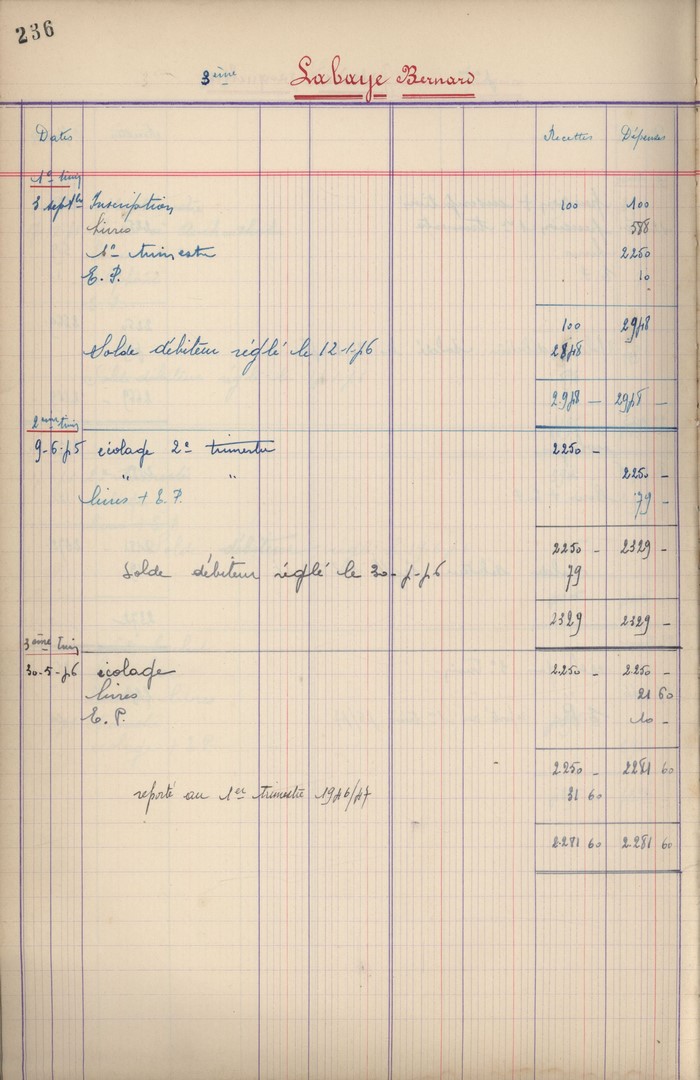 236
3ème Labaye Bernard
Dates Recettes Dépenses
1er trim
3 septbre Inscription 100 100
Livres 588
1er trimestre 2250
E. P. 10
100 2948
Solde débiteur réglé le 12-1-46 2848
2948 — 2948 —
2ème trim
écolage 2e trimestre 2250 -
" " 2250 -
livres + E. P. 79 -
2250 - 2329 -
Solde débiteur réglé le 79
2329 2329 -
3ème trim
30-5-46 écolage 2250 - 2250 -
livres 21 60
E. P. 10 -
2250 - 2281 60
reporté au 1er trimestre 1946/47 31 60
2281 60 2281 60